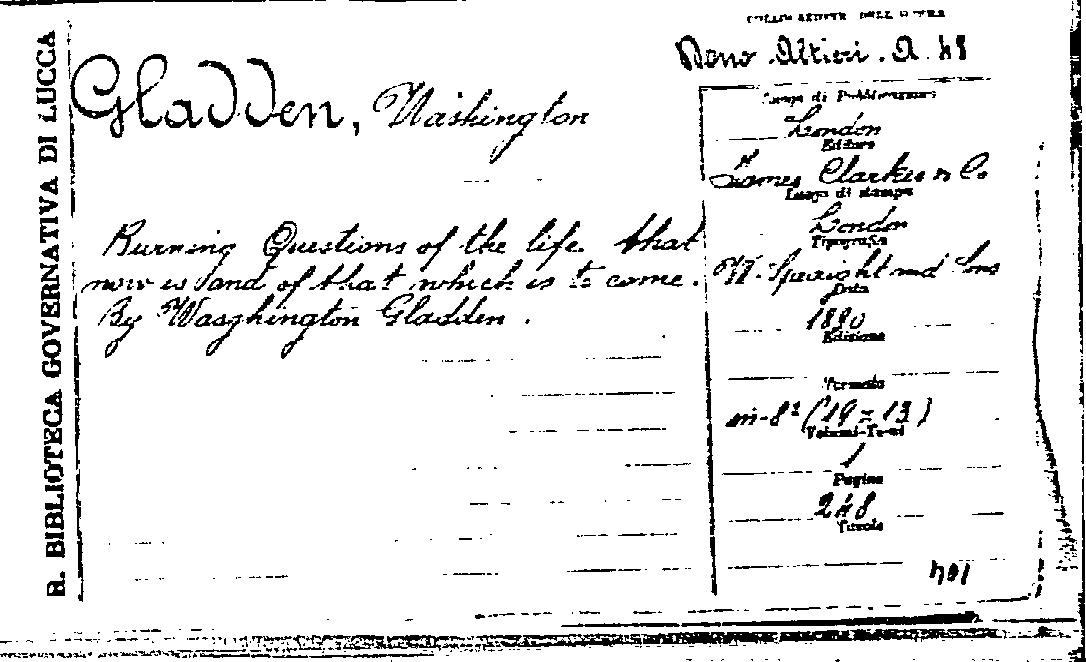 R. BIBLIOTECA GOVERNATIVA DI LUCCA
COLLOCAZIONE DELL'OPERA
Dono Altieri. A. 48
Gladden, Washington
Luogo di Pubblicazione
London
Editore
James Clarke & Co
Luogo di stampa
London
Tipografia
W. Speaight and Sons
Data
1890
Edizione
Formato
in-8° (19 x 13)
Volumi-Tomi
1
Pagine
248
Tavole
Burning Questions of the life that
now is and of that which is to come.
By Wasghington Gladden.